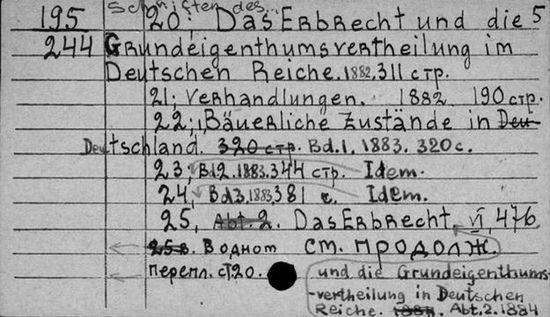 195 Schriften des... 20; Das Erbrecht und die 5
244 Grundeigenthumsvertheilung im
Deutschen Reiche. 1882. 311 стр.
21; Verhandlungen. 1882. 190 стр.
22; Bäuerliche Zustände in Deu-
Deutschland. 320 стр. Bd. 1. 1883. 320 с.
23, Bd 2. 1883. 344 стр. Idem.
24, Bd 3. 1883. 381 с. Idem.
25, Abt. 2. Das Erbrecht. VI, 476.
25 в. В одном см. продолж.
перепл. ст 20. und die Grundeigenthums-
-vertheilung in Deutschen
Reiche. 1884. Abt. 2. 1884